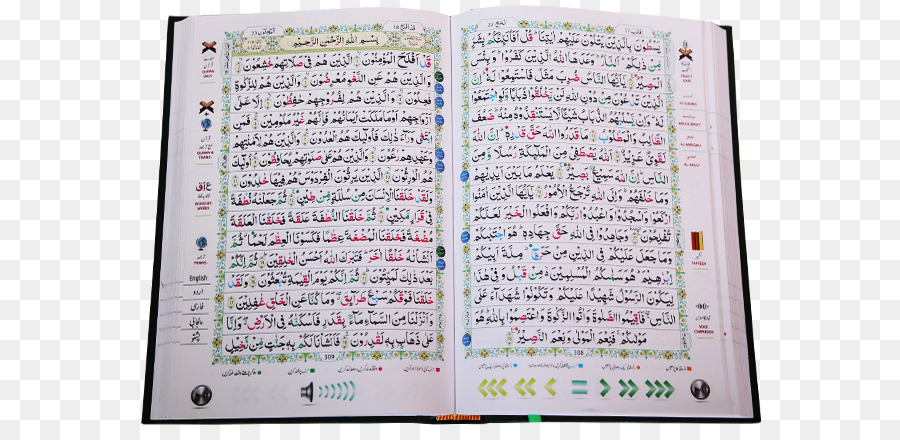 الحج ٢٢
يَسْطُوْنَ بِالَّذِيْنَ يَتْلُوْنَ عَلَيْهِمْ اٰيٰتِنَا ؕ قُلْ اَفَاُنَبِّئُكُمْ بِشَرٍّ
مِّنْ ذٰلِكُمْ ؕ اَلنَّارُ ؕ وَعَدَهَا اللّٰهُ الَّذِيْنَ كَفَرُوْا ؕ وَبِئْسَ
الْمَصِيْرُ يٰۤاَيُّهَا النَّاسُ ضُرِبَ مَثَلٌ فَاسْتَمِعُوْا لَهٗ ؕ اِنَّ
الَّذِيْنَ تَدْعُوْنَ مِنْ دُوْنِ اللّٰهِ لَنْ يَّخْلُقُوْا ذُبَابًا وَّلَوِ اجْتَمَعُوْا
لَهٗ ؕ وَاِنْ يَّسْلُبْهُمُ الذُّبَابُ شَيْـًٔا لَّا يَسْتَنْقِذُوْهُ مِنْهُ ؕ ضَعُفَ
الطَّالِبُ وَالْمَطْلُوْبُ مَا قَدَرُوا اللّٰهَ حَقَّ قَدْرِهٖ ؕ اِنَّ اللّٰهَ
لَقَوِيٌّ عَزِيْزٌ اَللّٰهُ يَصْطَفِيْ مِنَ الْمَلٰٓئِكَةِ رُسُلًا وَّمِنَ
النَّاسِ ؕ اِنَّ اللّٰهَ سَمِيْعٌۢ بَصِيْرٌ يَعْلَمُ مَا بَيْنَ اَيْدِيْهِمْ
وَمَا خَلْفَهُمْ ؕ وَاِلَى اللّٰهِ تُرْجَعُ الْاُمُوْرُ يٰۤاَيُّهَا الَّذِيْنَ اٰمَنُوا
ارْكَعُوْا وَاسْجُدُوْا وَاعْبُدُوْا رَبَّكُمْ وَافْعَلُوا الْخَيْرَ لَعَلَّكُمْ
تُفْلِحُوْنَ وَجَاهِدُوْا فِي اللّٰهِ حَقَّ جِهَادِهٖ ؕ هُوَ اجْتَبٰىكُمْ
وَمَا جَعَلَ عَلَيْكُمْ فِي الدِّيْنِ مِنْ حَرَجٍ ؕ مِلَّةَ اَبِيْكُمْ
اِبْرٰهِيْمَ ؕ هُوَ سَمّٰىكُمُ الْمُسْلِمِيْنَ مِنْ قَبْلُ وَفِيْ هٰذَا
لِيَكُوْنَ الرَّسُوْلُ شَهِيْدًا عَلَيْكُمْ وَتَكُوْنُوْا شُهَدَآءَ عَلَى
النَّاسِ ۚ فَاَقِيْمُوا الصَّلٰوةَ وَاٰتُوا الزَّكٰوةَ وَاعْتَصِمُوْا بِاللّٰهِ ؕ هُوَ
مَوْلٰىكُمْ ۚ فَنِعْمَ الْمَوْلٰى وَنِعْمَ النَّصِيْرُ
308
TAFSEER
VOICE COMPARISON
بِسْمِ اللّٰهِ الرَّحْمٰنِ الرَّحِيْمِ
قَدْ اَفْلَحَ الْمُؤْمِنُوْنَ الَّذِيْنَ هُمْ فِيْ صَلَاتِهِمْ خٰشِعُوْنَ
وَالَّذِيْنَ هُمْ عَنِ اللَّغْوِ مُعْرِضُوْنَ وَالَّذِيْنَ هُمْ لِلزَّكٰوةِ
فٰعِلُوْنَ وَالَّذِيْنَ هُمْ لِفُرُوْجِهِمْ حٰفِظُوْنَ اِلَّا عَلٰۤى
اَزْوَاجِهِمْ اَوْ مَا مَلَكَتْ اَيْمَانُهُمْ فَاِنَّهُمْ غَيْرُ مَلُوْمِيْنَ فَمَنِ
ابْتَغٰى وَرَآءَ ذٰلِكَ فَاُولٰٓئِكَ هُمُ الْعٰدُوْنَ وَالَّذِيْنَ هُمْ لِاَمٰنٰتِهِمْ
وَعَهْدِهِمْ رٰعُوْنَ وَالَّذِيْنَ هُمْ عَلٰى صَلَوٰتِهِمْ يُحَافِظُوْنَ اُولٰٓئِكَ
هُمُ الْوٰرِثُوْنَ الَّذِيْنَ يَرِثُوْنَ الْفِرْدَوْسَ ؕ هُمْ فِيْهَا خٰلِدُوْنَ
وَلَقَدْ خَلَقْنَا الْاِنْسَانَ مِنْ سُلٰلَةٍ مِّنْ طِيْنٍ ثُمَّ جَعَلْنٰهُ نُطْفَةً
فِيْ قَرَارٍ مَّكِيْنٍ ثُمَّ خَلَقْنَا النُّطْفَةَ عَلَقَةً فَخَلَقْنَا الْعَلَقَةَ
مُضْغَةً فَخَلَقْنَا الْمُضْغَةَ عِظٰمًا فَكَسَوْنَا الْعِظٰمَ لَحْمًا ۗ ثُمَّ
اَنْشَاْنٰهُ خَلْقًا اٰخَرَ ؕ فَتَبٰرَكَ اللّٰهُ اَحْسَنُ الْخٰلِقِيْنَ ثُمَّ اِنَّكُمْ
بَعْدَ ذٰلِكَ لَمَيِّتُوْنَ ثُمَّ اِنَّكُمْ يَوْمَ الْقِيٰمَةِ تُبْعَثُوْنَ وَلَقَدْ
خَلَقْنَا فَوْقَكُمْ سَبْعَ طَرَآئِقَ ۖ وَمَا كُنَّا عَنِ الْخَلْقِ غٰفِلِيْنَ
وَاَنْزَلْنَا مِنَ السَّمَآءِ مَآءًۢ بِقَدَرٍ فَاَسْكَنّٰهُ فِي الْاَرْضِ ۖ وَاِنَّا
عَلٰى ذَهَابٍۢ بِهٖ لَقٰدِرُوْنَ فَاَنْشَاْنَا لَكُمْ بِهٖ جَنّٰتٍ مِّنْ نَّخِيْلٍ
309
QURAN ONLY
QURAN & TRANS.
WORD BY WORD
TRANS.
English
اردو
فارسی
پنجابی
پشتو